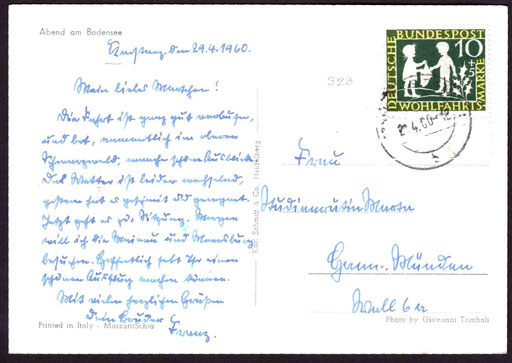 Abend am Bodensee
Konstanz, den 29.4.1960.
Mein liebes Martchen!
Die Fahrt ist ganz gut verlaufen,
und bot, namentlich im oberen
Schwarzwald, manche schöne Ausblicke.
Das Wetter ist leider wechselnd,
gestern hat es gestürmt und geregnet.
Jetzt geht es zur Sitzung. Morgen
will ich die Mainau und Meersburg
besuchen. Hoffentlich habt Ihr einen
schönen Ausflug machen können.
Mit vielen herzlichen Grüßen
Dein Bruder
Franz.
Printed in Italy - Marzari/Schio
Karl Schmitt & Co. Heidelberg
323
DEUTSCHE BUNDESPOST
10
+5
WOHLFAHRTSMARKE
4.60-12
Frau
Studienrätin Marta
Hann.-Münden
Wall 6a
Photo by Giovanni Trimboli